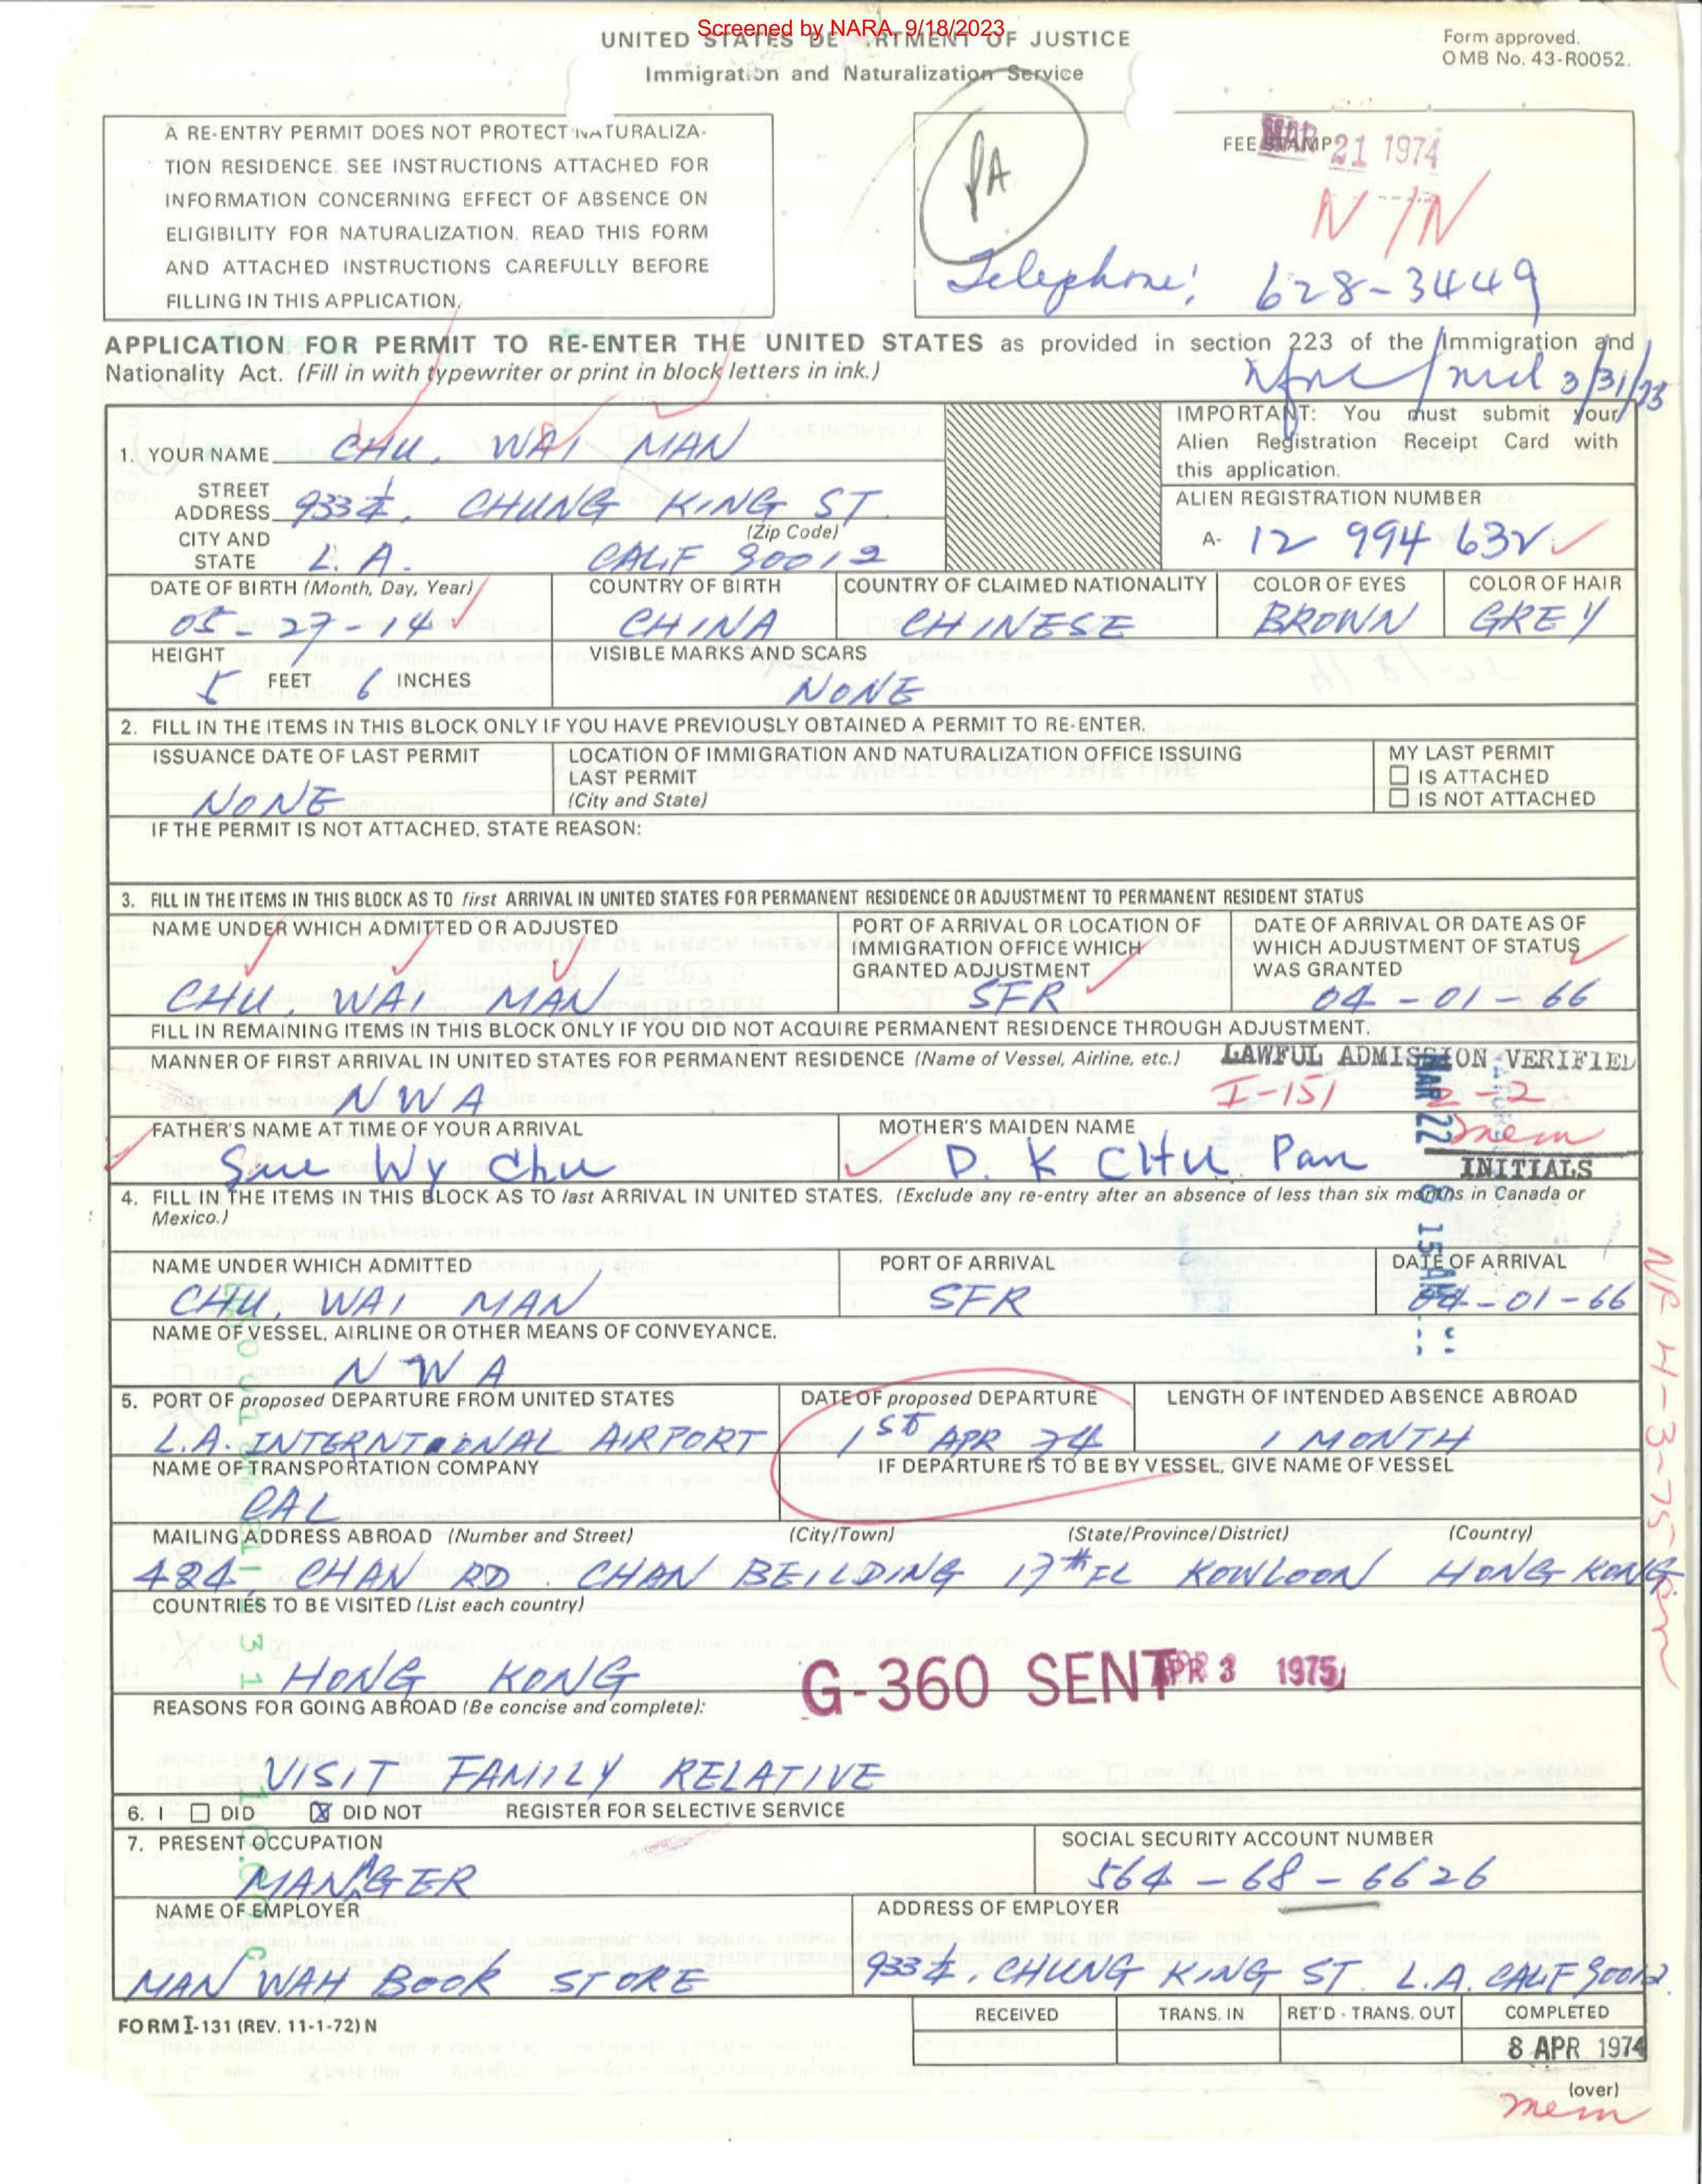 Screened by NARA, 9/18/2023
UNITED STATES DE RTMENT OF JUSTICE
Immigration and Naturalization Service
Form approved.
OMB No. 43-R0052.
A RE-ENTRY PERMIT DOES NOT PROTECT NATURALIZA-
TION RESIDENCE. SEE INSTRUCTIONS ATTACHED FOR
INFORMATION CONCERNING EFFECT OF ABSENCE ON
ELIGIBILITY FOR NATURALIZATION. READ THIS FORM
AND ATTACHED INSTRUCTIONS CAREFULLY BEFORE
FILLING IN THIS APPLICATION.
PA
FEE STAMP
MAR 21 1974
N/N
Telephone: 628-3449
APPLICATION FOR PERMIT TO RE-ENTER THE UNITED STATES as provided in section 223 of the Immigration and
Nationality Act. (Fill in with typewriter or print in block letters in ink.)
3/31/75
1. YOUR NAME CHU, WAI MAN
STREET ADDRESS 933½, CHUNG KING ST.
(Zip Code)
CITY AND STATE L.A. CALIF 90012
IMPORTANT: You must submit your
Alien Registration Receipt Card with
this application.
ALIEN REGISTRATION NUMBER
A- 12 994 632
DATE OF BIRTH (Month, Day, Year) COUNTRY OF BIRTH COUNTRY OF CLAIMED NATIONALITY COLOR OF EYES COLOR OF HAIR
05-27-14 CHINA CHINESE BROWN GREY
HEIGHT VISIBLE MARKS AND SCARS
5 FEET 6 INCHES NONE
2. FILL IN THE ITEMS IN THIS BLOCK ONLY IF YOU HAVE PREVIOUSLY OBTAINED A PERMIT TO RE-ENTER.
ISSUANCE DATE OF LAST PERMIT
NONE
LOCATION OF IMMIGRATION AND NATURALIZATION OFFICE ISSUING
LAST PERMIT
(City and State)
MY LAST PERMIT
IS ATTACHED
IS NOT ATTACHED
IF THE PERMIT IS NOT ATTACHED, STATE REASON:
3. FILL IN THE ITEMS IN THIS BLOCK AS TO first ARRIVAL IN UNITED STATES FOR PERMANENT RESIDENCE OR ADJUSTMENT TO PERMANENT RESIDENT STATUS
NAME UNDER WHICH ADMITTED OR ADJUSTED
CHU, WAI MAN
PORT OF ARRIVAL OR LOCATION OF
IMMIGRATION OFFICE WHICH
GRANTED ADJUSTMENT
SFR
DATE OF ARRIVAL OR DATE AS OF
WHICH ADJUSTMENT OF STATUS
WAS GRANTED
04-01-66
FILL IN REMAINING ITEMS IN THIS BLOCK ONLY IF YOU DID NOT ACQUIRE PERMANENT RESIDENCE THROUGH ADJUSTMENT.
MANNER OF FIRST ARRIVAL IN UNITED STATES FOR PERMANENT RESIDENCE (Name of Vessel, Airline, etc.)
NWA
LAWFUL ADMISSION VERIFIED
I-151 2-2
mem
INITIALS
MAR 22 8 15 AM
FATHER'S NAME AT TIME OF YOUR ARRIVAL
Sue Wy Chu
MOTHER'S MAIDEN NAME
D. K CHU Pan
4. FILL IN THE ITEMS IN THIS BLOCK AS TO last ARRIVAL IN UNITED STATES. (Exclude any re-entry after an absence of less than six months in Canada or
Mexico.)
NAME UNDER WHICH ADMITTED PORT OF ARRIVAL DATE OF ARRIVAL
CHU, WAI MAN SFR 04-01-66
NAME OF VESSEL, AIRLINE OR OTHER MEANS OF CONVEYANCE.
NWA
5. PORT OF proposed DEPARTURE FROM UNITED STATES DATE OF proposed DEPARTURE LENGTH OF INTENDED ABSENCE ABROAD
L.A. INTERNTIONAL AIRPORT 1ST APR 74 1 MONTH
NAME OF TRANSPORTATION COMPANY IF DEPARTURE IS TO BE BY VESSEL, GIVE NAME OF VESSEL
CAL
MAILING ADDRESS ABROAD (Number and Street) (City/Town) (State/Province/District) (Country)
424, CHAN RD. CHAN BEILDING 17th FL KOWLOON HONG KONG.
COUNTRIES TO BE VISITED (List each country)
HONG KONG
G-360 SENT APR 3 1975
REASONS FOR GOING ABROAD (Be concise and complete):
VISIT FAMILY RELATIVE
6. I DID DID NOT REGISTER FOR SELECTIVE SERVICE
7. PRESENT OCCUPATION SOCIAL SECURITY ACCOUNT NUMBER
MANAGER 564-68-6626
NAME OF EMPLOYER ADDRESS OF EMPLOYER
MAN WAH BOOK STORE 933½, CHUNG KING ST. L.A. CALIF 90012.
FORM I-131 (REV. 11-1-72) N
RECEIVED TRANS. IN RET'D - TRANS. OUT COMPLETED
8 APR 1974
(over)
mem